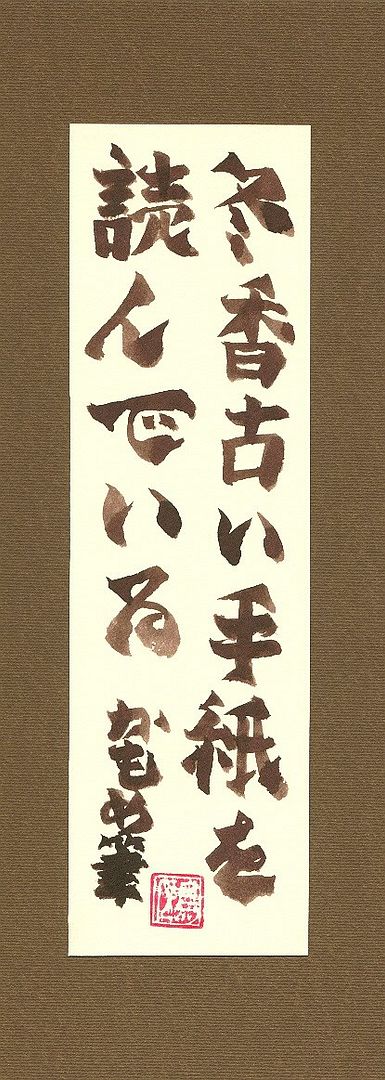 冬香古い手紙を
読んでいる
かもめ筆